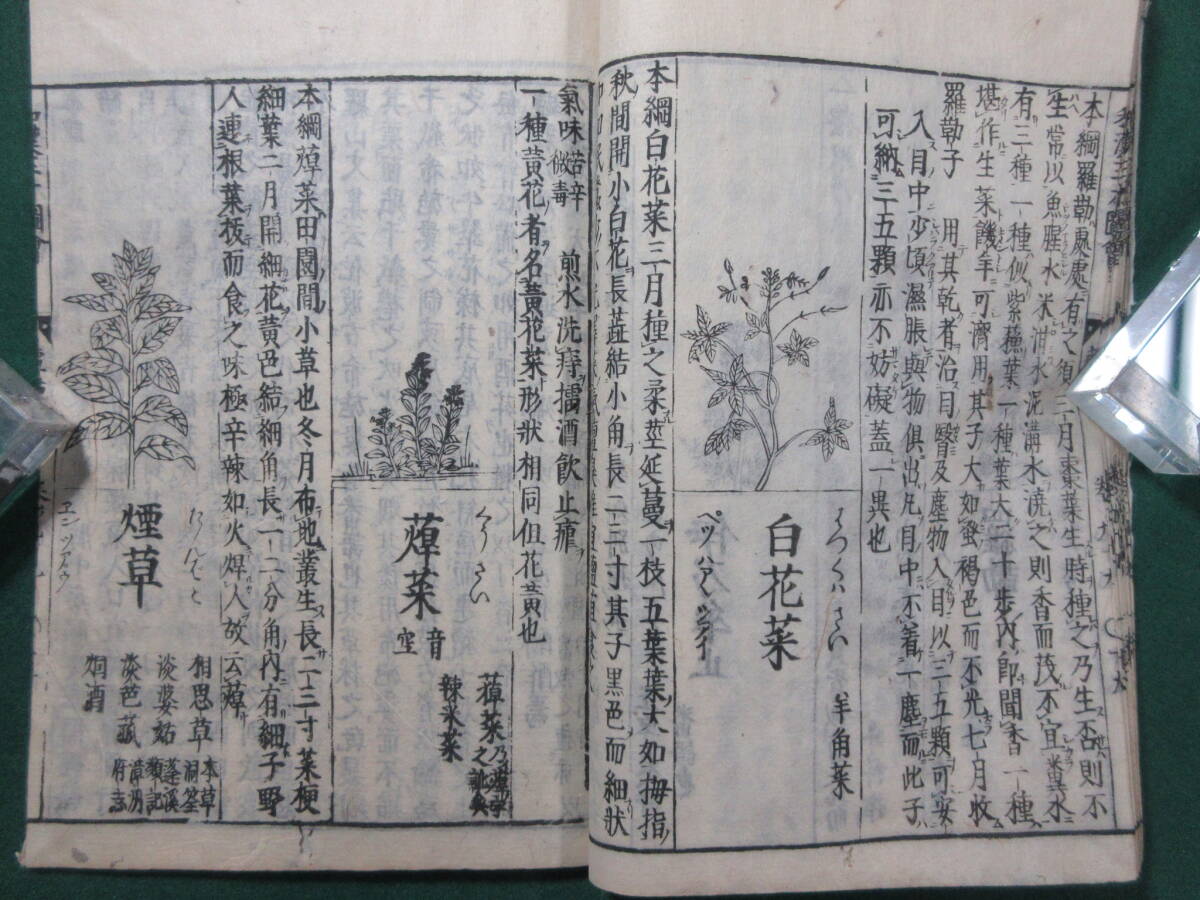 本綱羅勒處處有之須三月棗葉生時種之乃生否則不
生常以魚腥水米泔水泥溝水澆之則香而茂不宜糞水
有三種一種似紫蘇葉一種葉大二十步內卽聞香一種
堪作生菜饑年可濟用其子大如蚤褐色而不光七月收
羅勒子 用其乾者治目瞖及塵物入目以三五顆可安
入目中少頃濕脹與物俱出凡目中不着一塵而此子
可納三五顆亦不妨礙蓋一異也
はつくはさい
白花菜
ペツハアツライ
羊角菜
本綱白花菜三月種之柔莖延蔓一枝五葉葉大如拇指
秋間開小白花長蕋結小角長二三寸其子黑色而細狀
氣味 苦辛 微毒 煎水洗痔擣酒飲止瘧
一種黃花者名黃花菜形狀相同但花黃也
くうさい
蔊菜
音 空
辣米菜
本綱蔊菜田園間小草也冬月布地叢生長二三寸葉梗
細葉二月開細花黃色結細角長一二分角內有細子野
人連根葉拔而食之味極辛辣如火焊人故云蔊
たばこ
煙草
エンツアウ
相思草 本草洞筌
淡婆姑 蓬溪類記
淡芭菰 漳州府志
烟酒